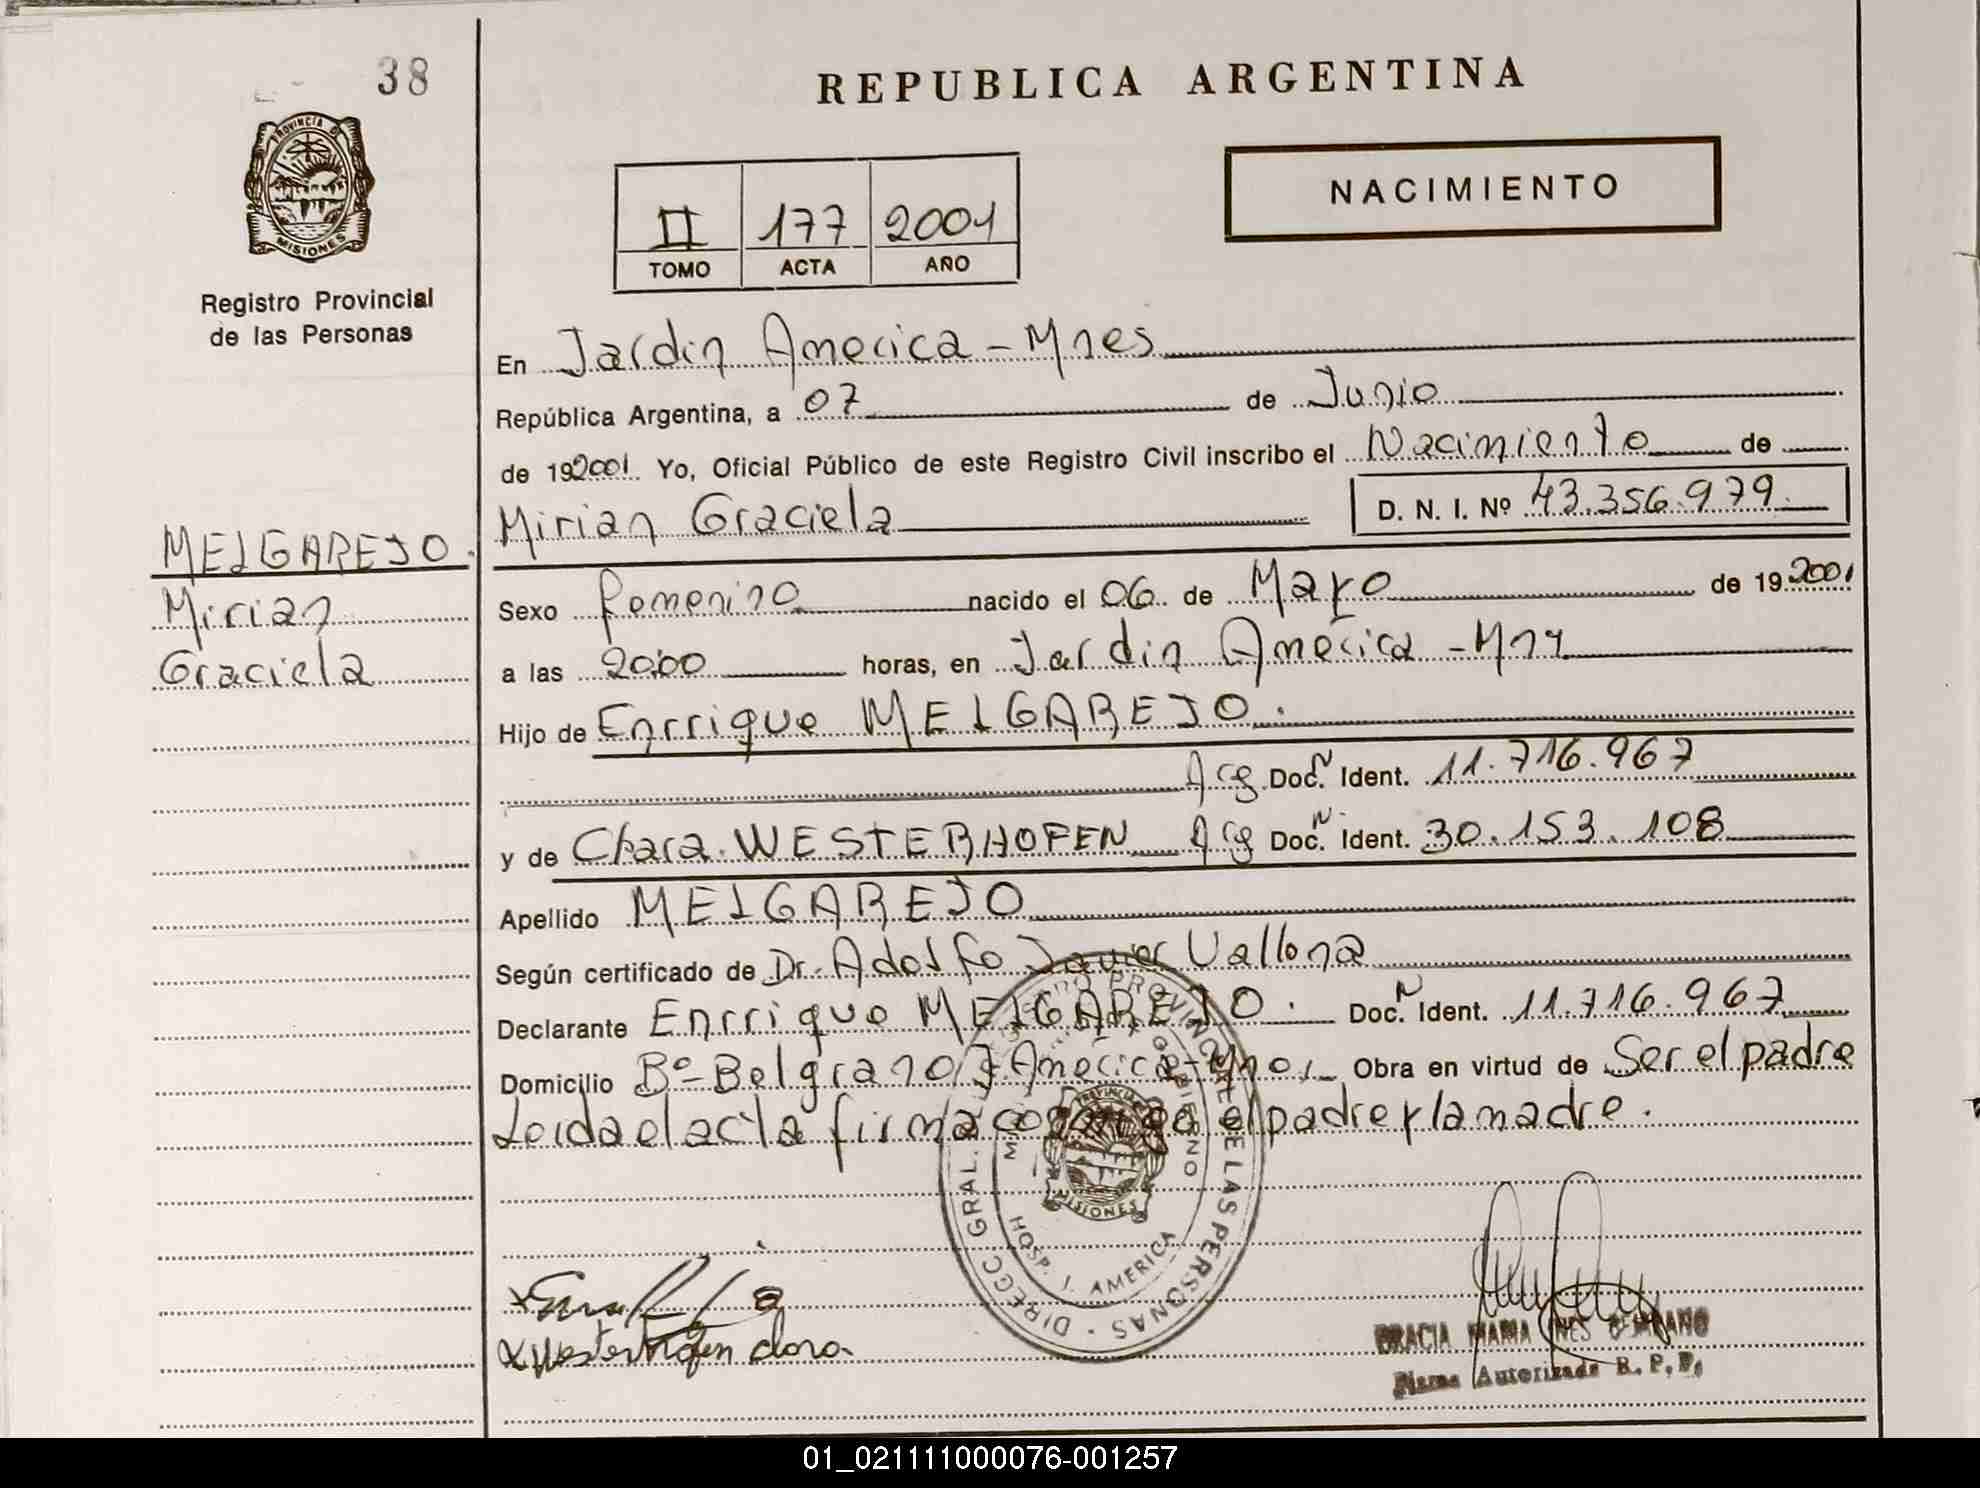 38
REPUBLICA ARGENTINA
PROVINCIA DE
MISIONES
Registro Provincial
de las Personas
NACIMIENTO
II 177 2001
TOMO ACTA AÑO
En Jardin America - Mnes
República Argentina, a 07 de Junio
de 192001 Yo, Oficial Público de este Registro Civil inscribo el Nacimiento de
Mirian Graciela D. N. I. Nº 43.356.979.
MELGAREJO.
Mirian
Graciela
Sexo femenino nacido el 06 de Mayo de 192001
a las 20:00 horas, en Jardin America - Mnes
Hijo de Enrrique MELGAREJO.
Arg Doc. N Ident. 11.716.967
y de Clara WESTERHOFEN Arg Doc. N Ident. 30.153.108
Apellido MELGAREJO
Según certificado de Dr. Adolfo Javier Vallona
Declarante Enrrique MELGAREJO. Doc. N Ident. 11.716.967
Domicilio Bº- Belgrano J. America - Mnes Obra en virtud de Ser el padre
Leida el acta firma conmigo el padre y la madre.
DIRECC GRAL. PROVINCIAL DE LAS PERSONAS
GOBIERNO
HOSP. J. AMERICA
MISIONES
Westerhofen clara
GRACIA MARIA INES
Autorizada R. P. P.
01_021111000076-001257